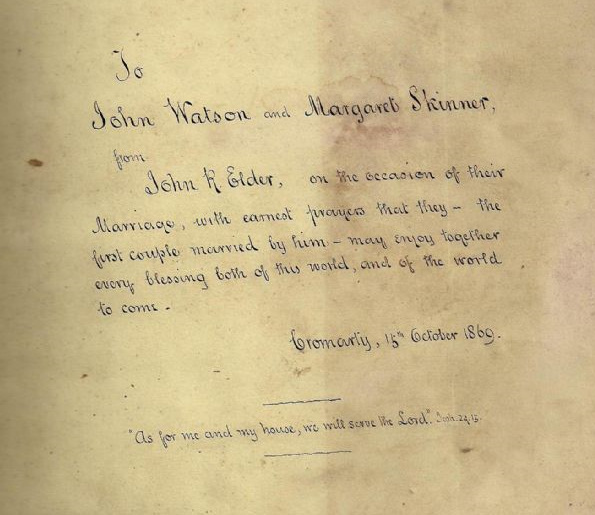 To
John Watson and Margaret Skinner,
from
John R Elder, on the occasion of their
Marriage, with earnest prayers that they – the
first couple married by him – may enjoy together
every blessing both of this world, and of the world
to come.
Cromarty, 15th October 1869.
"As for me and my house, we will serve the Lord". Josh. 24.15.